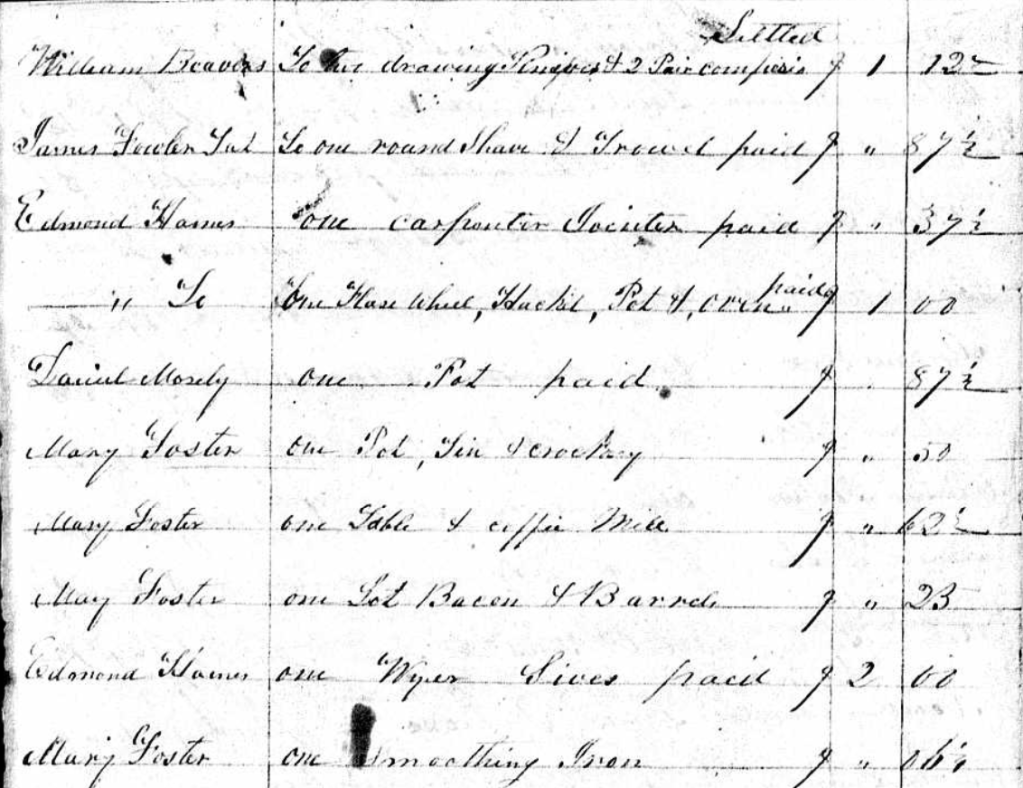 Settled
William Beavers To two drawing Knives & 2 Pair compasis $ 1 12½
James Fowler To one round Shave & Trowel paid $ " 87½
Edmond Hames one carpenter Jointer paid $ " 37½
" To one Flax Wheel, Hackel, Pot &, oven paid $ 1 00
Daniel Mosely one Pot paid $ " 87½
Mary Foster one Pot, Tin & crockry $ " 50
Mary Foster one Table & coffie Mill $ " 62½
Mary Foster one Lot Bacon & Barrels $ " 25
Edmond Hames one Wyer Sives paid $ 2 00
Mary Foster one Smoothing Iron $ " 06¼